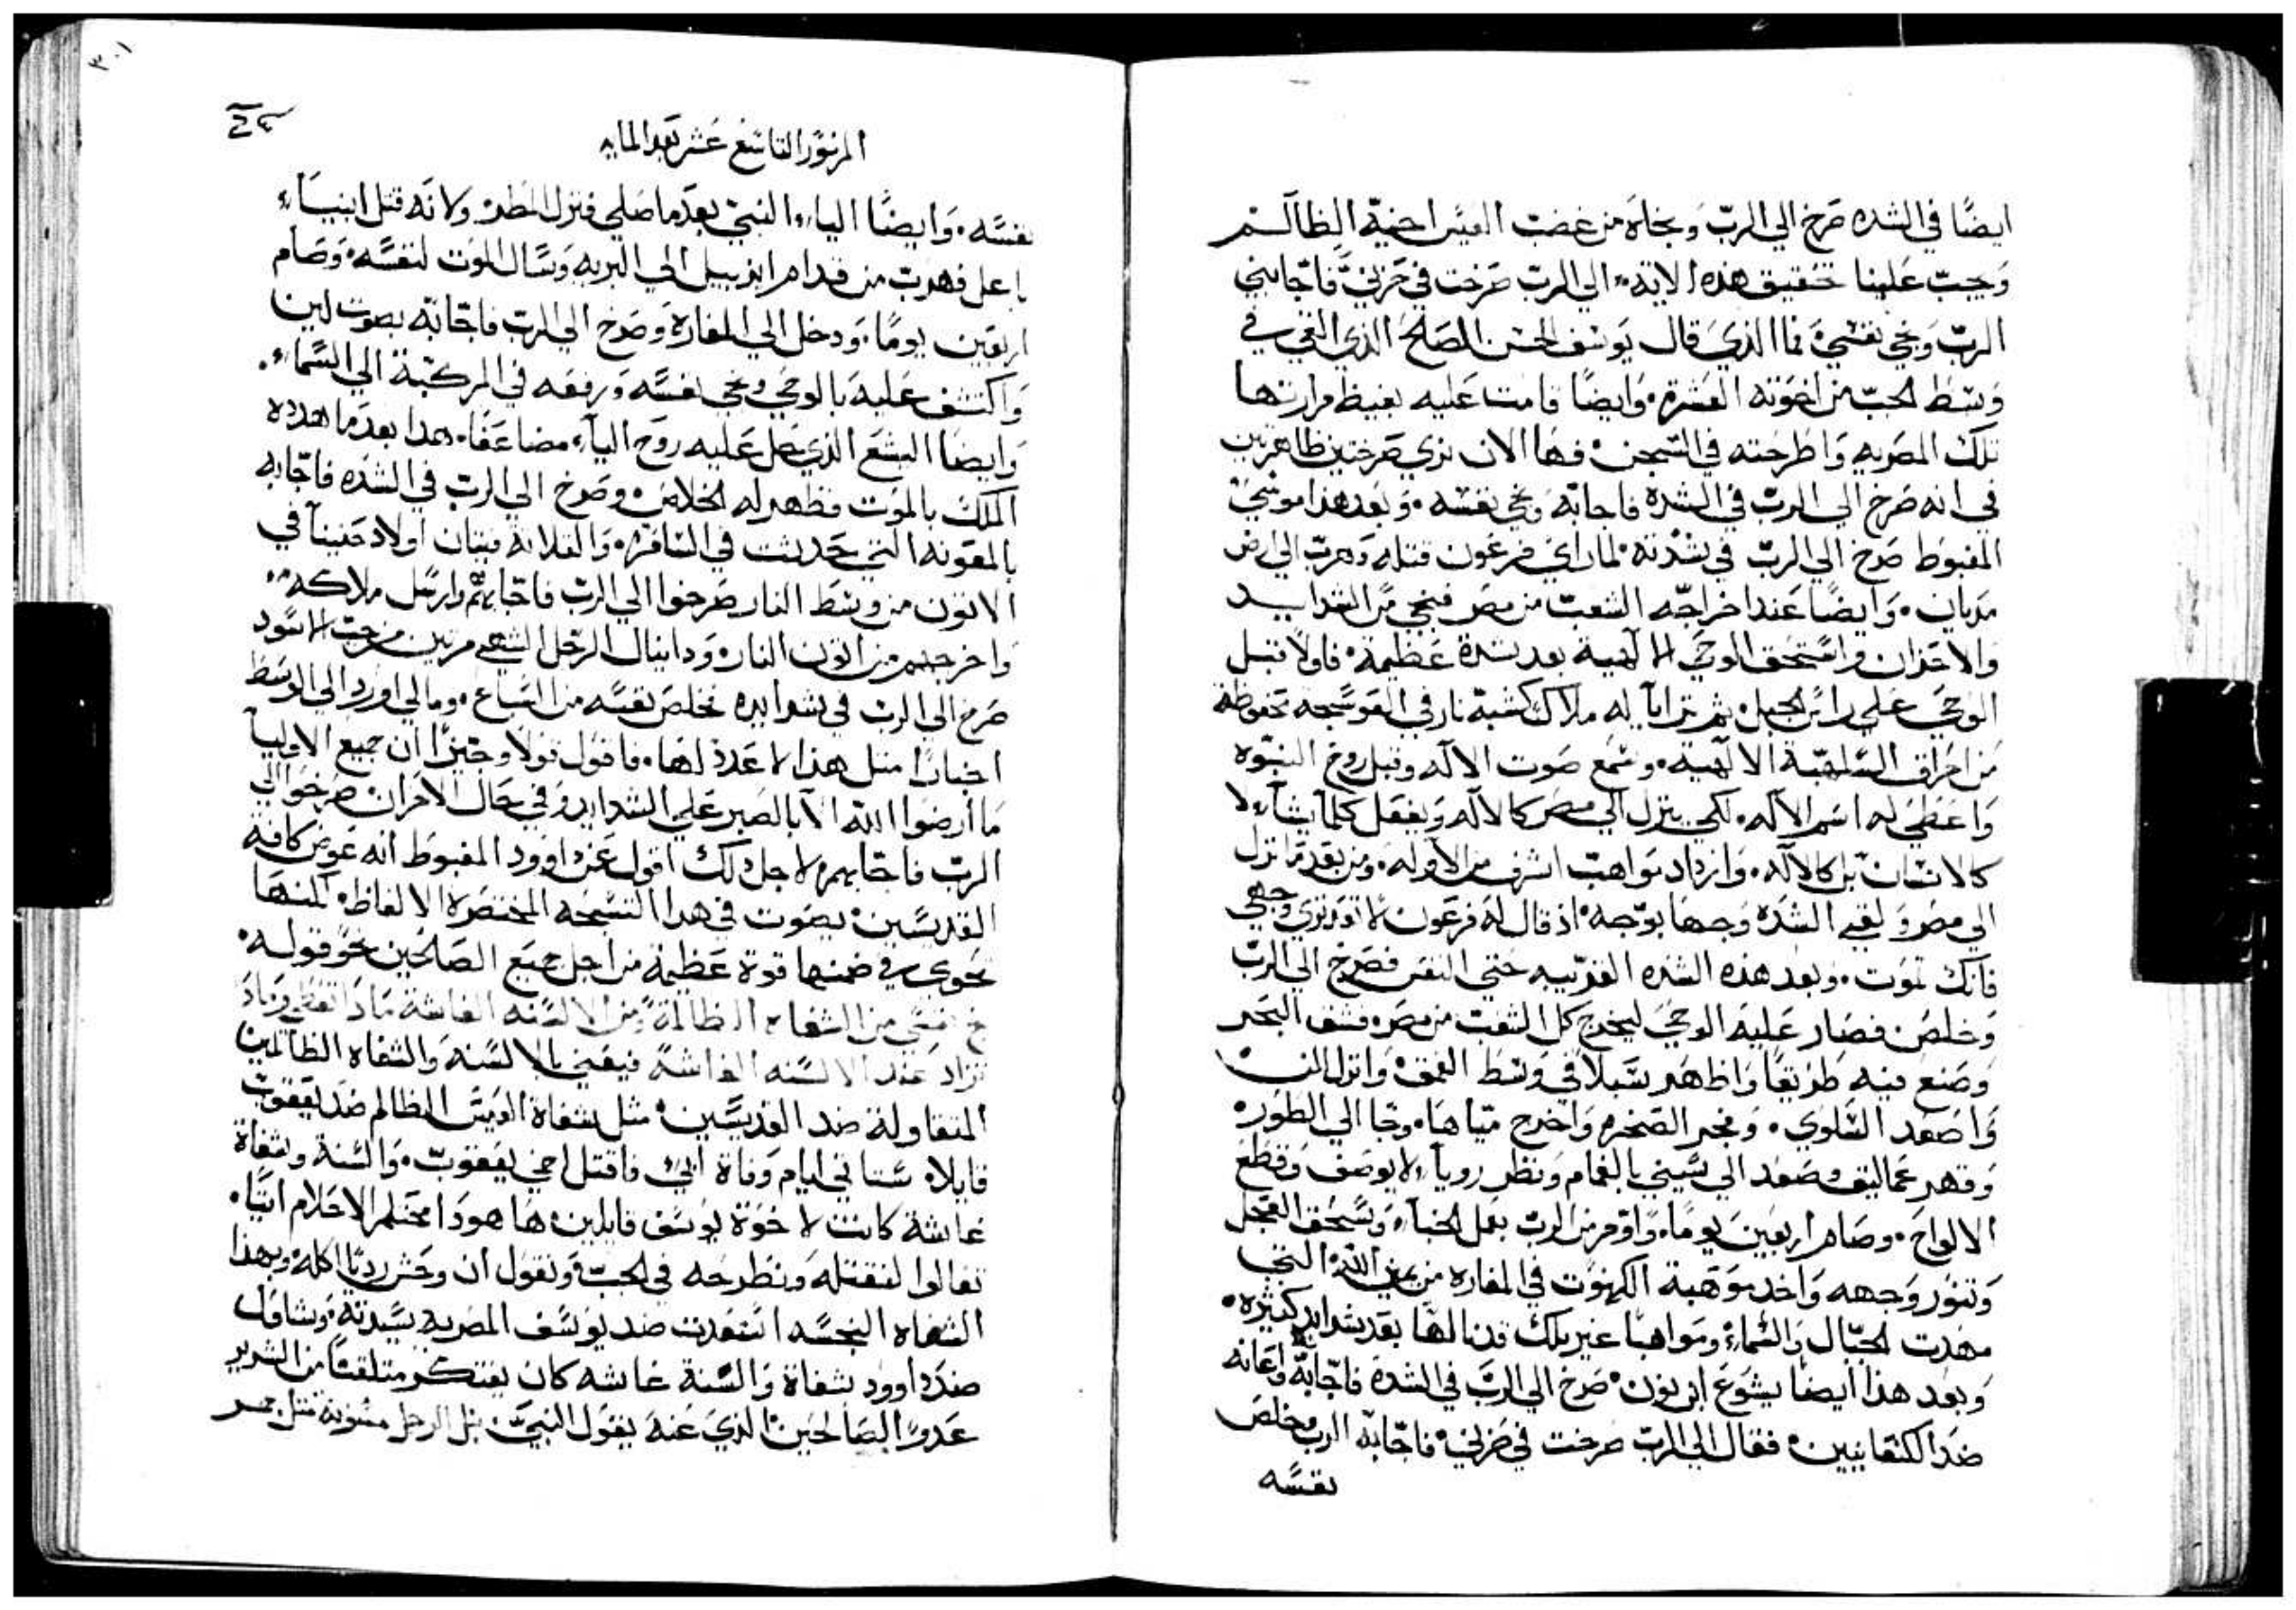 ايضًا في الشده صرخ الي الربّ ونجاه من غضب العيس اخيه الظالم
وَيجبّ عَلينا تحقيق هذه الاية الي الربّ صرخت في حزني فاجابني
الربّ وَنجي نفسي فما الذي قال يوسف الحسن المصلح الذي القي في
وَسَط الجبّ من اخوته العشرة وَايضًا قامت عَليه بغيظ مرارتها
تلك المصريه وَاطرحته في السّجن فها الان نري صرختين ظاهرتين
في انه صَرخ الي الربّ في الشدة فاجابَه ونجي نفسَه وَبَعد هذا موسي
المغبوط صَرخ الي الربّ في شدته لما راي فرعَون قتله وَهربَ الي ارض
مديان وَايضًا عَند اخراجَه الشعبّ من مصر فنجي من الشدايد
والاحَزان وَاسَتحق الوحَي الالهية بعد شدة عَظيمة فاولا قبل
الوحَي عَلي راسَ الجبل ثم ترايا له ملاك كشبه نار في العوسَجه محفوظة
من احَراق السَلهبة الالهية وَسَمع صَوت الاله وقبل روح النبّوه
وَاعَطي له اسَم الاله لكي ينزل الي مصر كالاله وَيفعَل كلما يشآء لا
كالانسان بل كالاله وَازداد مَواهب اشرف من الاوله ومن بعَد مَا نزل
الي مصر وَلقي الشدة وَجهَا بوَجه اذ قال له فرعَون لا تعود تري وجهي
فانك تموَت وبعد هذه الشده القريبه حَتي النفس فصَرخ الي الربّ
وَخلصَ فصَار عَليه الوحي ليخرج كل الشعَب من مصر فشق البَحر
وَصَنع فيه طرَيقًا وَاظهر سَبلا في وَسَط العَمق وَانزل المن
وَاصَعد السَلوي وَفجر الصَخره وَاخرج مَياهَا وجَا الي الطَور
وَقهر عَماليق وصَعد الي سَيني بالغمام وَنظر رويآ لا يوصَف وَقطع
الالواح وصَام اربعَين يومًا وَاوقر من الربّ بعَمل الخبآء وسَحق العَجل
وَتنوّر وَجهه وَاخذ موَهبة الكهنوَت في المغاره من الله التي
مهدت الجَبال وَالسَماء ومَواهبا غير تلك قد نالهَا بعَد شدايد كثيرَه
وَبعَد هذا ايضا يشوَع ابن نون صَرخ الي الربّ في الشدة فاجَابه وَاعَانه
ضدَ الكنعَانيين فقال الي الربّ صرخت في حَزني فاجَابه الرب وخلصَ
نفسَه
٣٠١
المزمَور التاسَع عَشر بَعد المايه
نفسَه وَايضًا اليآء النبيَ بعدَما صَلي فنزل المطَر وَلانَه قتل انبيَآء
باعل فهَربَ من قدام ايزبيل الي البريه وَسَال الموَت لنفسَه وَصَام
اربعَين يومًا وَدخل الي المغارة وصَرخ الي الرب فاجَابَه بصَوت لين
وَاكتشف عَليه بالوحَي ونجي نفسَه وَرفعَه في المركبة الي السَماء
وَايضَا اليشع الذي حَل عَليه روَح اليآء مضاعَفًا هَدا بعَدمَا هدده
الملك بالموَت فظهر له الخلاصَ وصَرخ الي الربّ في الشدَه فاجَابه
بالمعَونه التي حَدثت في السَامَرَة وَالثلاثة فتيان اولاد حَنينآ في
الاتون من وسَط النار صَرخوا الي الربّ فاجَابهم وَارسَل ملاكه
وَاخرجهم من اتون النار وَدانيال الرجَل الشهي مرتين من جب الاسَود
صَرخ الي الرب في شدايده فخلصَ نفسَه من السَباع ومالي اورد الي الوسَط
اخبارًا مثل هذا لا عَدد لهَا فاقول قولا وجيَزًا ان جَميع الاوليآ
مَا ارضوا الله الا بالصَبر عَلي الشدايد وَفي حَال الاحَزان صَرخوا الي
الربّ فاجَابهم لاجل ذلك اقول عَن داوود المغبوط انه عَوض كافة
القديسَين يصَوت في هدا التسَبحه المختصَرة الالفاظ لكنهَا
تحَوي في ضمنها قوة عَظيمة من اجل جَميع الصَالحين نحَو قوله
نج نفسَي من الشفاه الظالمة ومن الالسَنه الغاشة مَاذا تعَطي ومَاذَا
تزاد عَند الالسَنه الغاشة فيعَني بالالسَنه وَالشفاه الظالمين
المتقاولة ضد القديسَين مثل شفاة العَيسَ الظالم ضدَ يعَقوَب
قايلا سَتاتي ايام وَفاة ابي فاقتل اخي يعَقوبَ وَالسَنة وَشفاة
غاشة كانت لاخوَة يوسَف قايلين هَا هودَا محَتلم الاحَلام اتيًا
تعَالوا لنقتلهَ وَنطرحَه في الجبّ وَنقول ان وَحَش رديًا اكله وَبهذا
الشفاه النجسَه استعَدت ضد يوسَف المصَريه سَيدته وَشاول
ضدَ داوود بشفاة وَالسَنة غاشه كان يفتكر متلقنًا من الشرير
عَدوّ الصَالحَين الذي عَنه يقول النبيَ